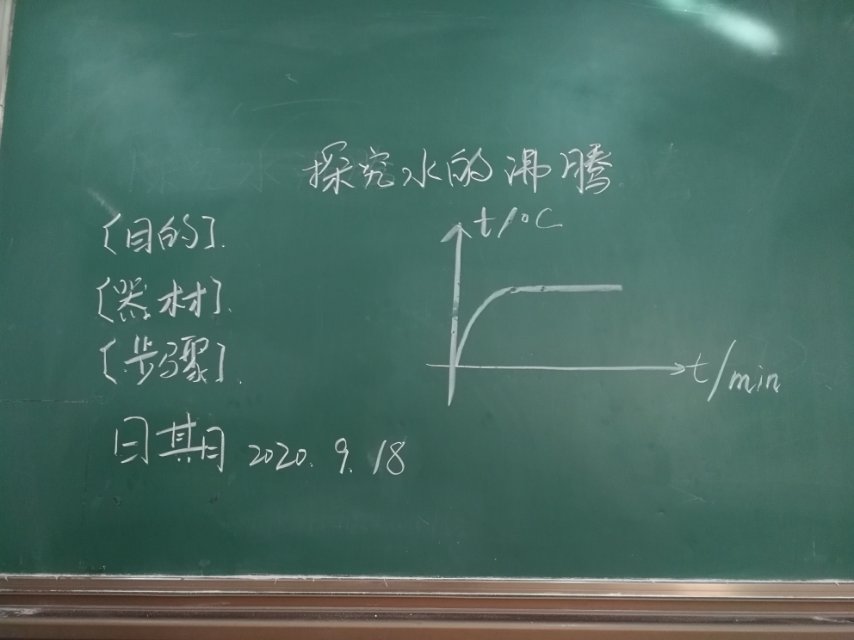 探究水的沸腾
[目的].
[器材].
[步骤].
日期 2020.9.18
t/°C
t/min